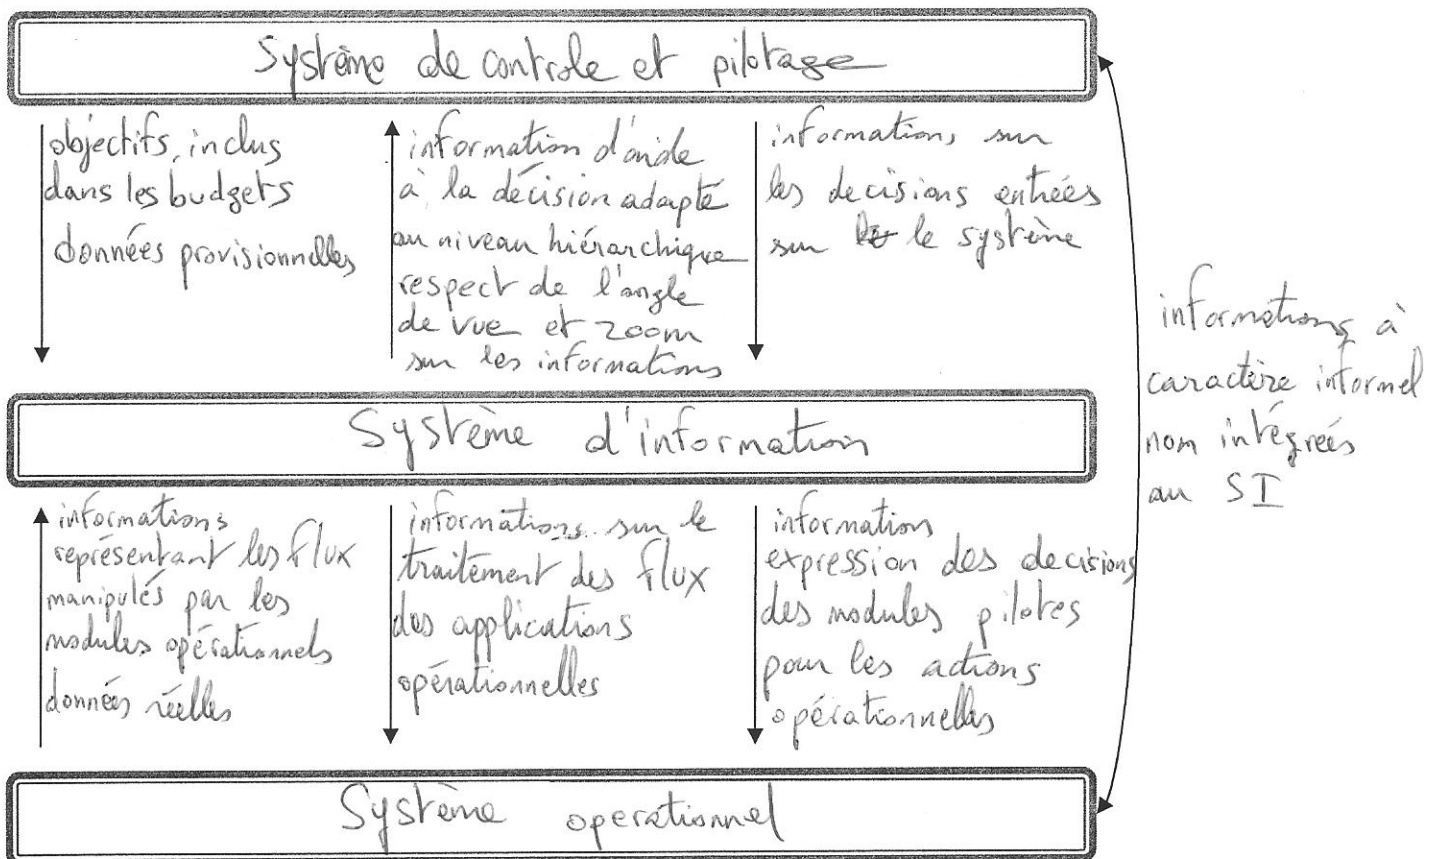 Système de controle et pilotage
objectifs, inclus
dans les budgets
données provisionnelles
information d'aide
à la décision adapté
au niveau hiérarchique
respect de l'angle
de vue et zoom
sur les informations
informations sur
les decisions entrées
sur le système
informations à
caractère informel
nom intégrées
au SI
Système d'information
informations
représentant les flux
manipulés par les
modules opérationnels
données réelles
informations sur le
traitement des flux
des applications
opérationnelles
information
expression des decisions
des modules pilotes
pour les actions
opérationnelles
Système operationnel